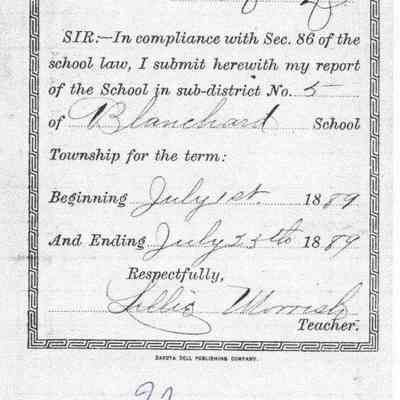 SIR:—In compliance with Sec. 86 of the
school law, I submit herewith my report
of the School in sub-district No. 5
of Blanchard School
Township for the term:
Beginning July 1st. 1889
And Ending July 25th 1889
Respectfully,
Lillie Morrish
Teacher.
DAKOTA BELL PUBLISHING COMPANY.